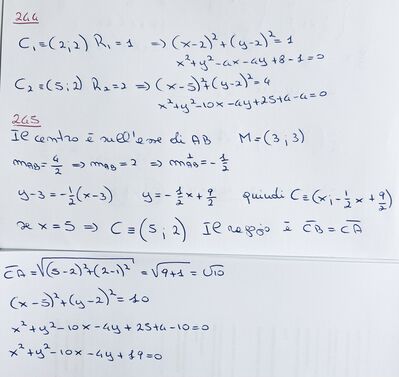 244
C₁=(2;2) R₁=1 ⇒(x-2)²+(y-2)²=1
x²+y²-4x-4y+8-1=0
C₂=(5;2) R₂=2 ⇒(x-5)²+(y-2)²=4
x²+y²-10x-4y+25+4-4=0
245
Il centro è sull'asse di AB M=(3;3)
m_AB=4/2 ⇒ m_AB=2 ⇒ m⊥_AB=-1/2
y-3=-1/2(x-3) y=-1/2x+9/2 quindi C≡(x;-1/2x+9/2)
se x=5 ⇒ C≡(5;2) Il raggio è C̅B̅=C̅A̅
C̅A̅=√(5-2)²+(2-1)²=√9+1=√10
(x-5)²+(y-2)²=10
x²+y²-10x-4y+25+4-10=0
x²+y²-10x-4y+19=0